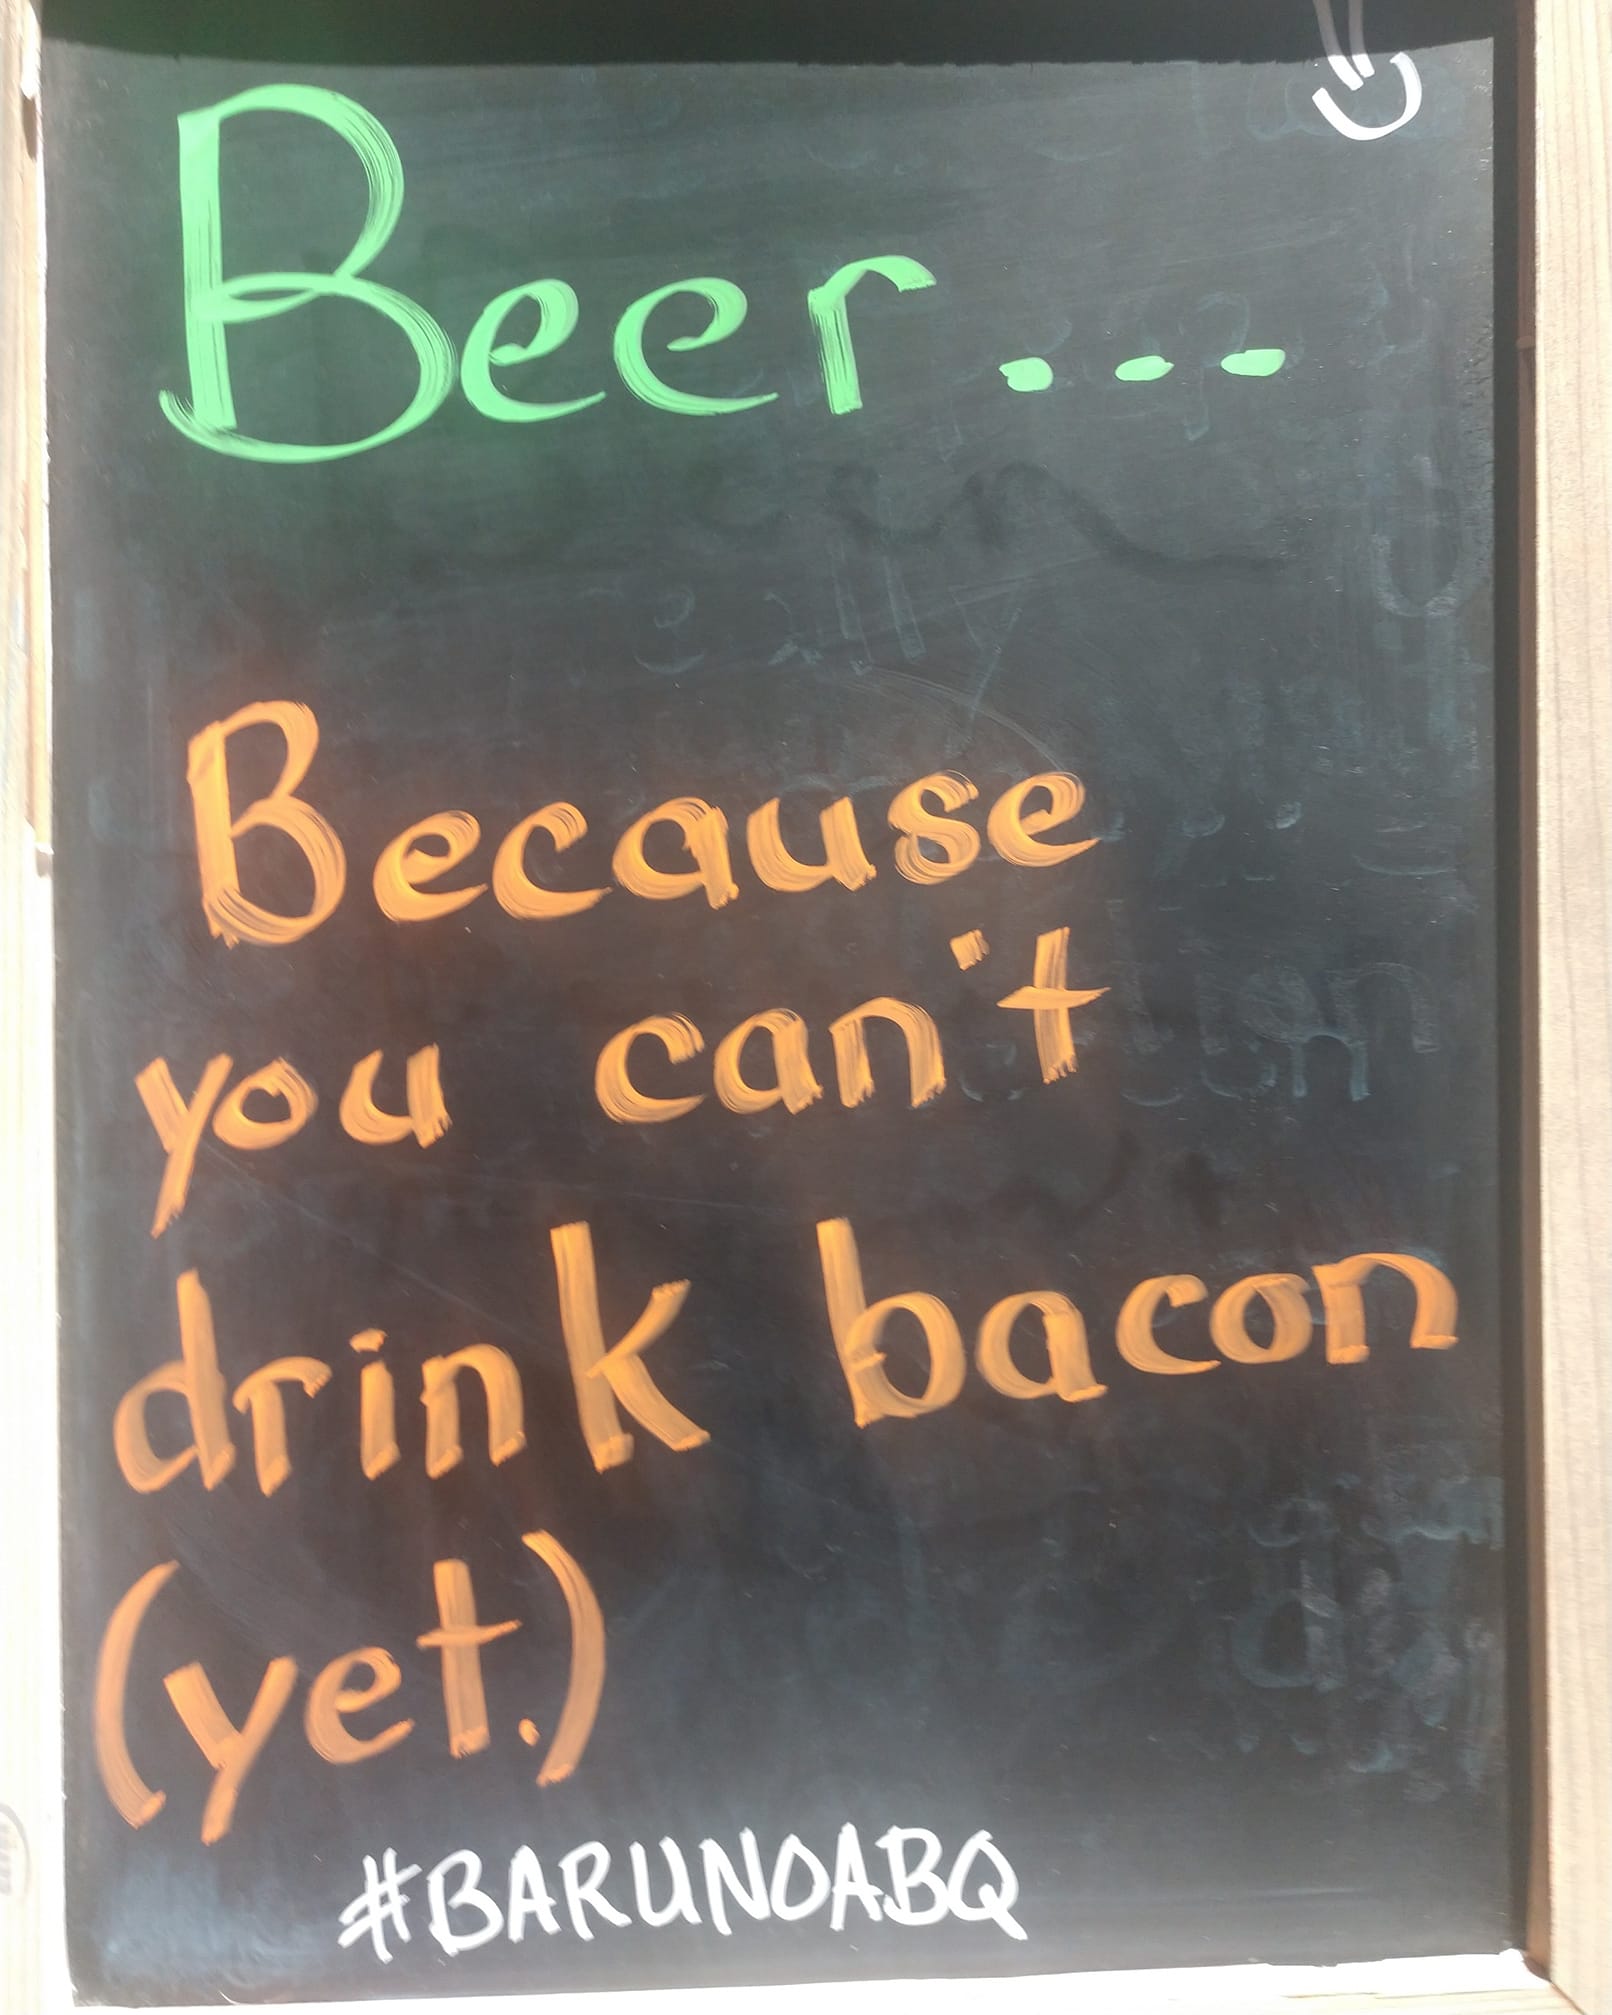 Beer...
Because
you can't
drink bacon
(yet.)
#BARUNOABQ